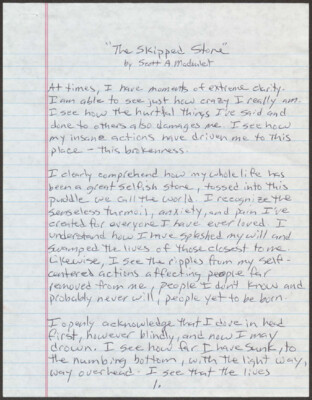 "The Skipped Stone"
by Scott A.
At times, I have moments of extreme clarity.
I am able to see just how crazy I really am.
I see how the hurtful things I've said and
done to others also damages me. I see how
my insane actions have driven me to this
place - this brokenness.
I clearly comprehend how my whole life has
been a great selfish stone, tossed into this
puddle we call the world. I recognize the
senseless turmoil, anxiety, and pain I've
created for everyone I have ever loved. I
understand how I have splashed my will and
swamped the lives of those closest to me.
Likewise, I see the ripples from my self-
centered actions affecting people far
removed from me, people I don't know and
probably never will, people yet to be born.
I openly acknowledge that I dove in head
first, however blindly, and now I may
drown. I see how far I have sunk, to
the numbing bottom, with the light way,
way overhead. I see that the lives
1.